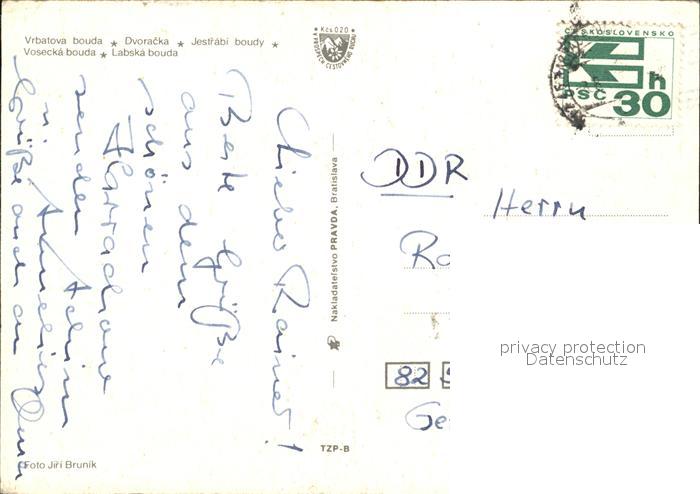 Vrbatova bouda ★ Dvoračka ★ Jestřábí boudy ★
Vosecká bouda ★ Labská bouda
Kčs 0,20
V PROSPĚCH CESTOVNÉHO RUCHU
ČESKOSLOVENSKO
h
PSČ 30
Lieber Rainer!
Beste Grüße
aus dem
schönen
Harrachov
senden Achim
u. Annelies
Grüße auch an
DDR
Herrn
Ra
82
Ge
Nakladateľstvo PRAVDA, Bratislava
TZP-B
Foto Jiří Bruník
privacy protection
Datenschutz